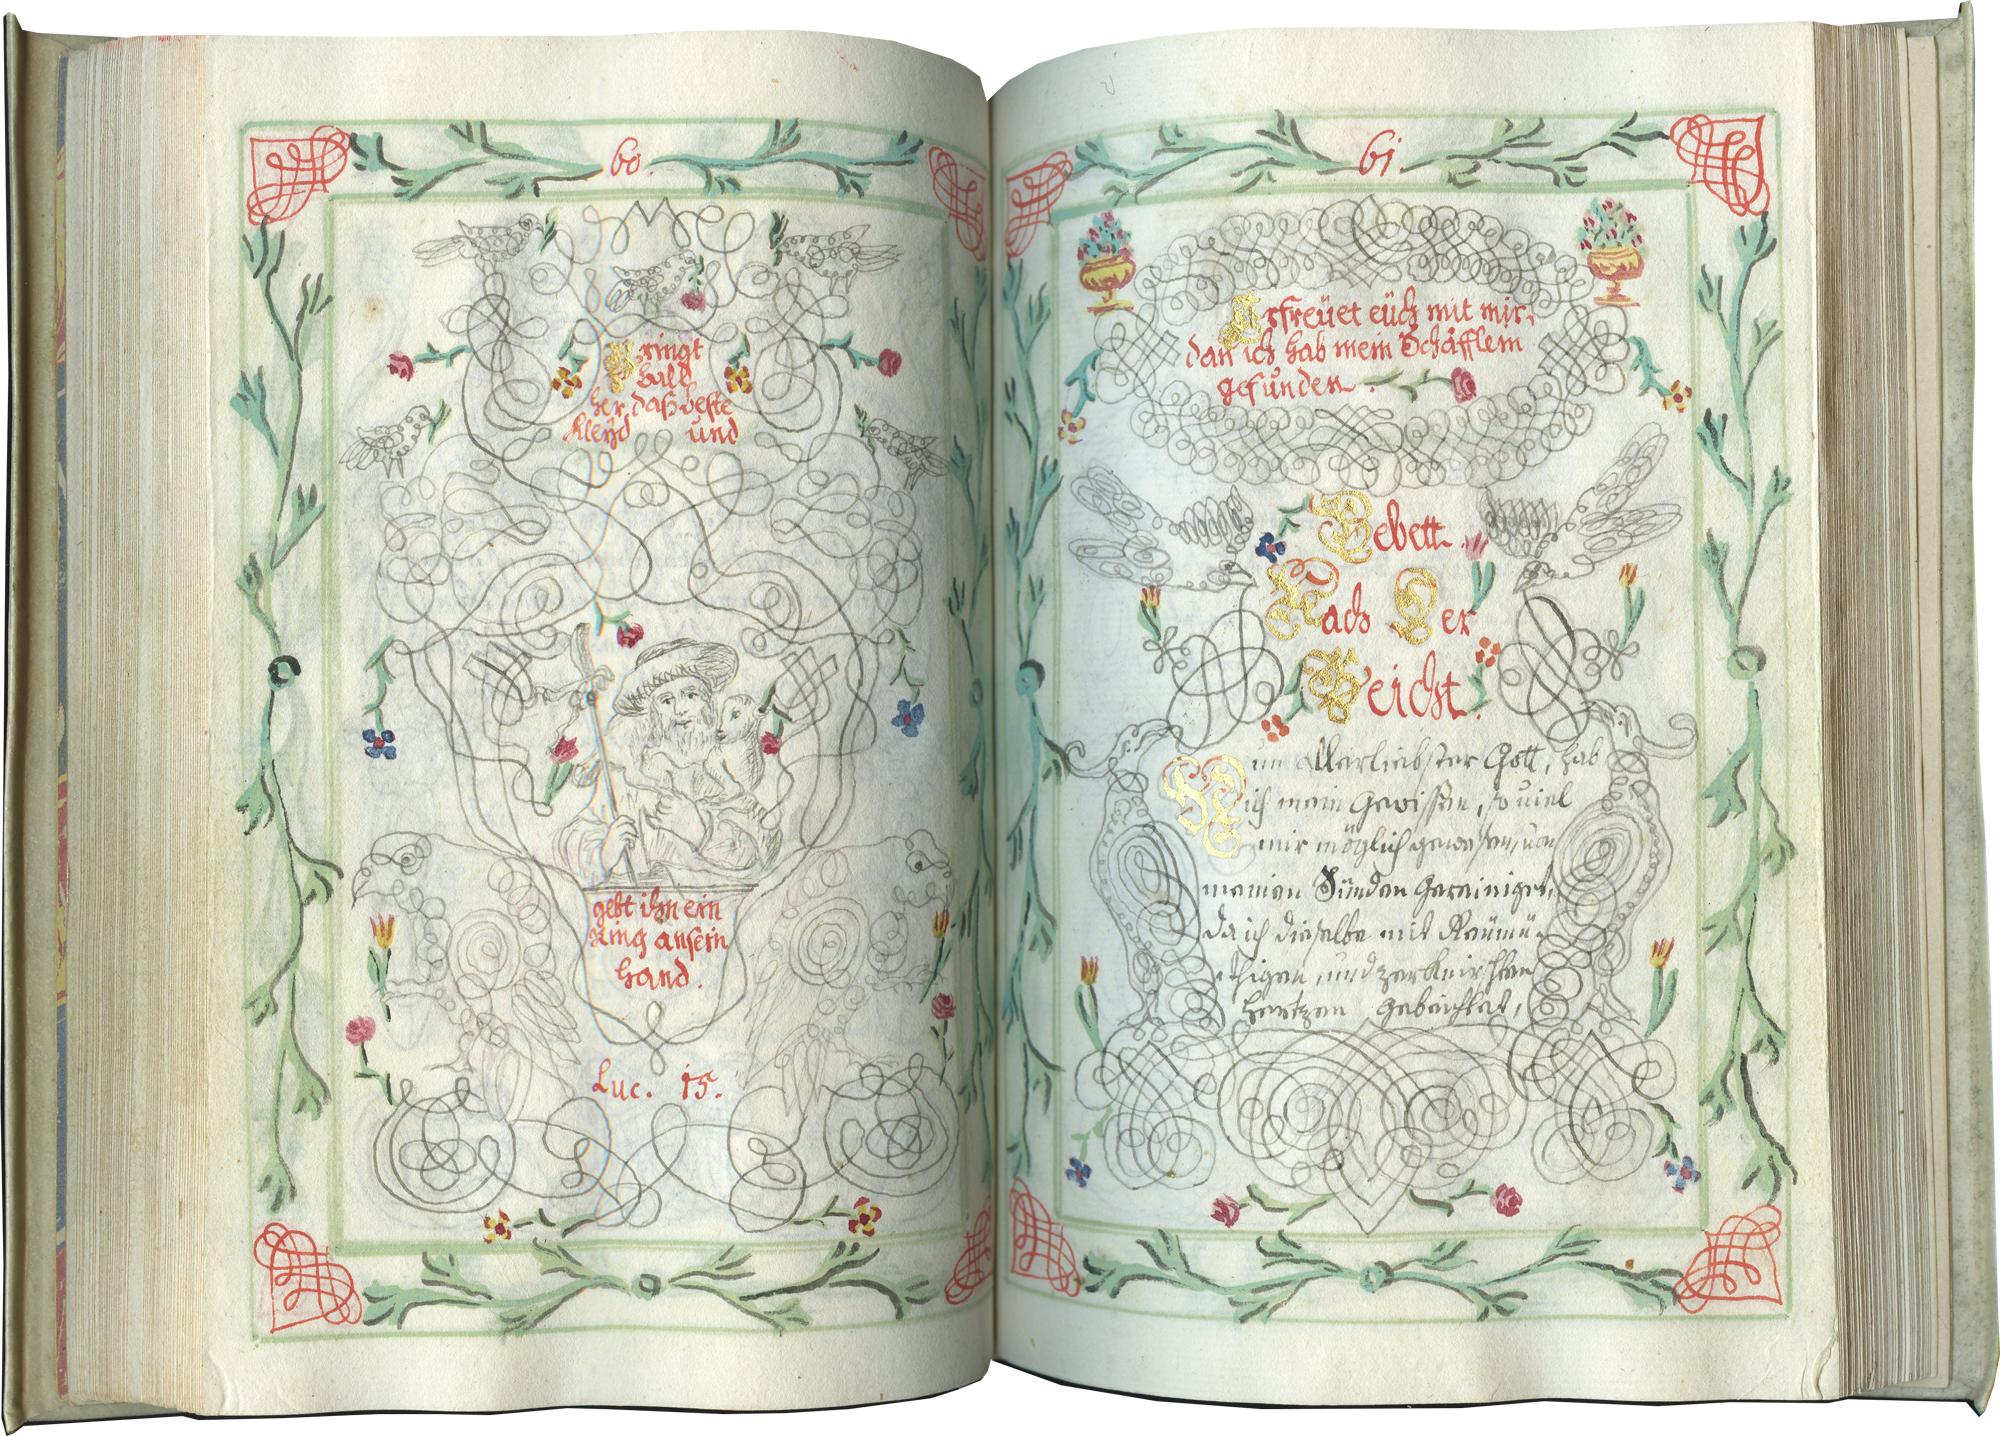 60.
Bringt
bald
her, daß beste
Kleÿd und
gebt ihn ein
Ring an sein
hand.
Luc. 15.
61
Erfreüet eüch mit mir,
dan ich hab mein Schäfflein
gefunden.
Gebett
Nach Der
Beicht.
Nun allerliebster Gott, hab
ich mein Gewissen, so uiel
mir möglich gewesen, uon
meinen Sünden gereiniget,
da ich dieselbe mit Reümü-
thigen, und zerknirschten
hertzen gebeichtet,